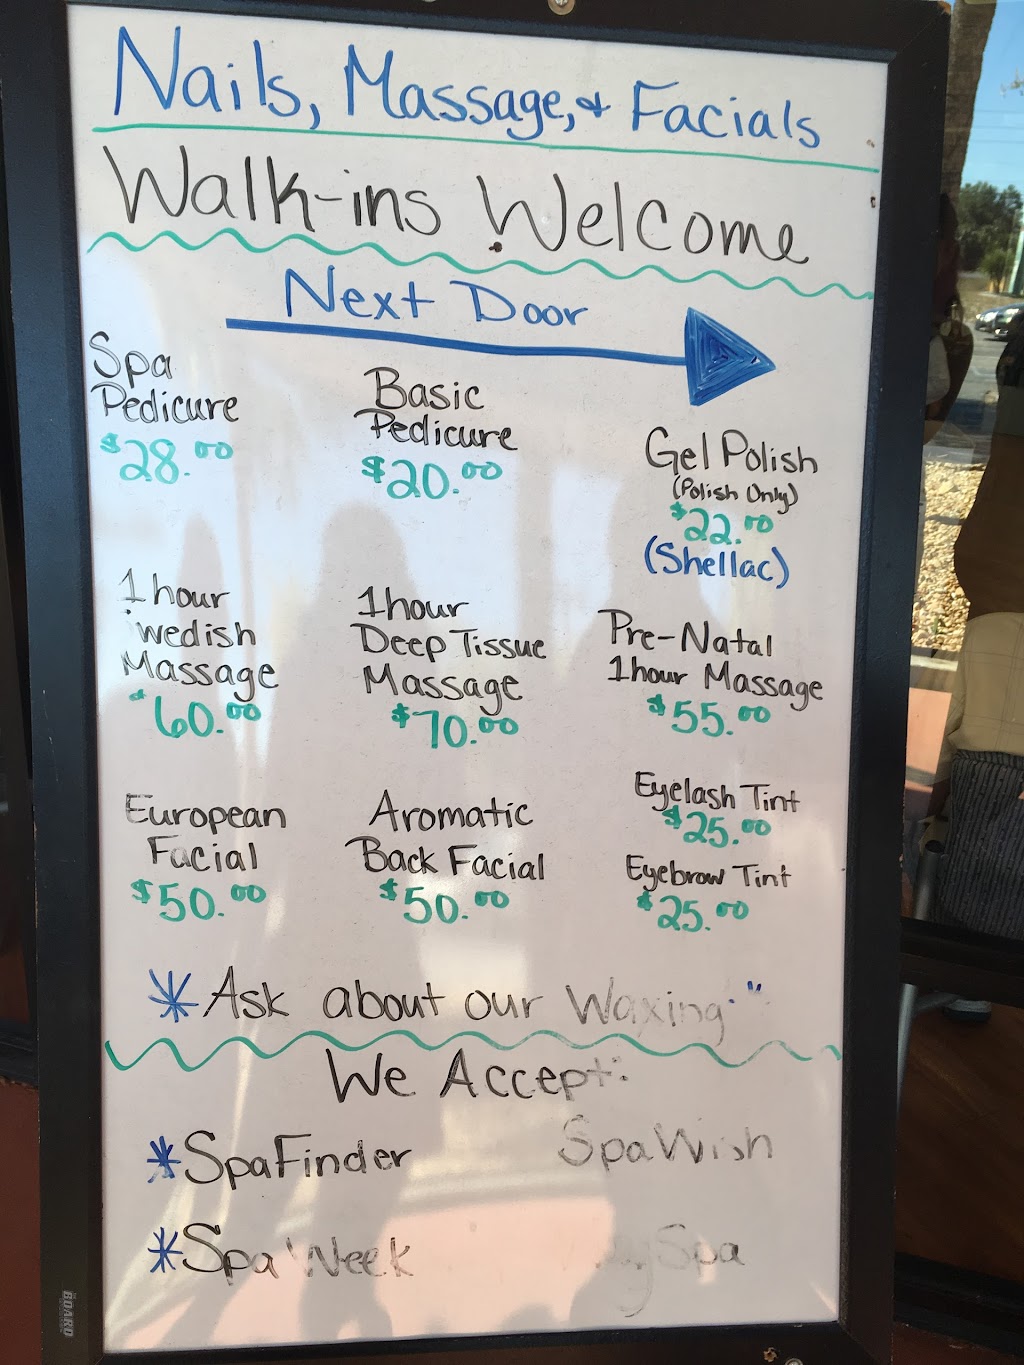 Nails, Massage, & Facials
Walk-ins Welcome
Next Door
Spa
Pedicure
$28.00
Basic
Pedicure
$20.00
Gel Polish
(Polish Only)
$22.00
(Shellac)
1 hour
wedish
Massage
$60.00
1 hour
Deep Tissue
Massage
$70.00
Pre-Natal
1 hour Massage
$55.00
European
Facial
$50.00
Aromatic
Back Facial
$50.00
Eyelash Tint
$25.00
Eyebrow Tint
$25.00
*Ask about our Waxing."
We Accept:
*SpaFinder
SpaWish
*Spa Week
Spa
BOARD